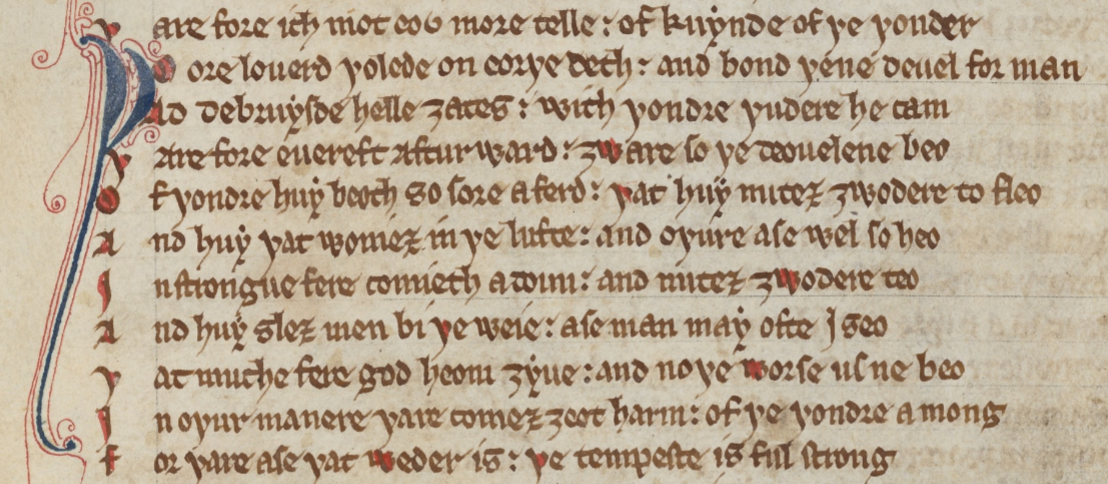 Þare fore ich mot eou more telle : of kuynde of þe þonder
Þo ore louerd þolede on eorþe deth : and bond þene deuel for man
And debruysde helle ȝates : with þondre þudere he cam
Þare fore euereft aftur ward : ȝware so þe deouelene beo
Of þondre huy beoth so sore aferd : þat huy nuteȝ ȝwodere to fleo
And huy þat wonieȝ in þe lufte : and oþure ase wel so heo
In strongue fere comieth a doun : and nuteȝ ȝwodere teo
And huy sleȝ men bi þe weie : ase man may ofte I seo
Þat muche fere god heom ȝyue : and no þe worse us ne beo
In oþur manere þare comeȝ ȝeot harm : of þe þondre a mong
For þare ase þat weder is : þe tempeste is ful strong